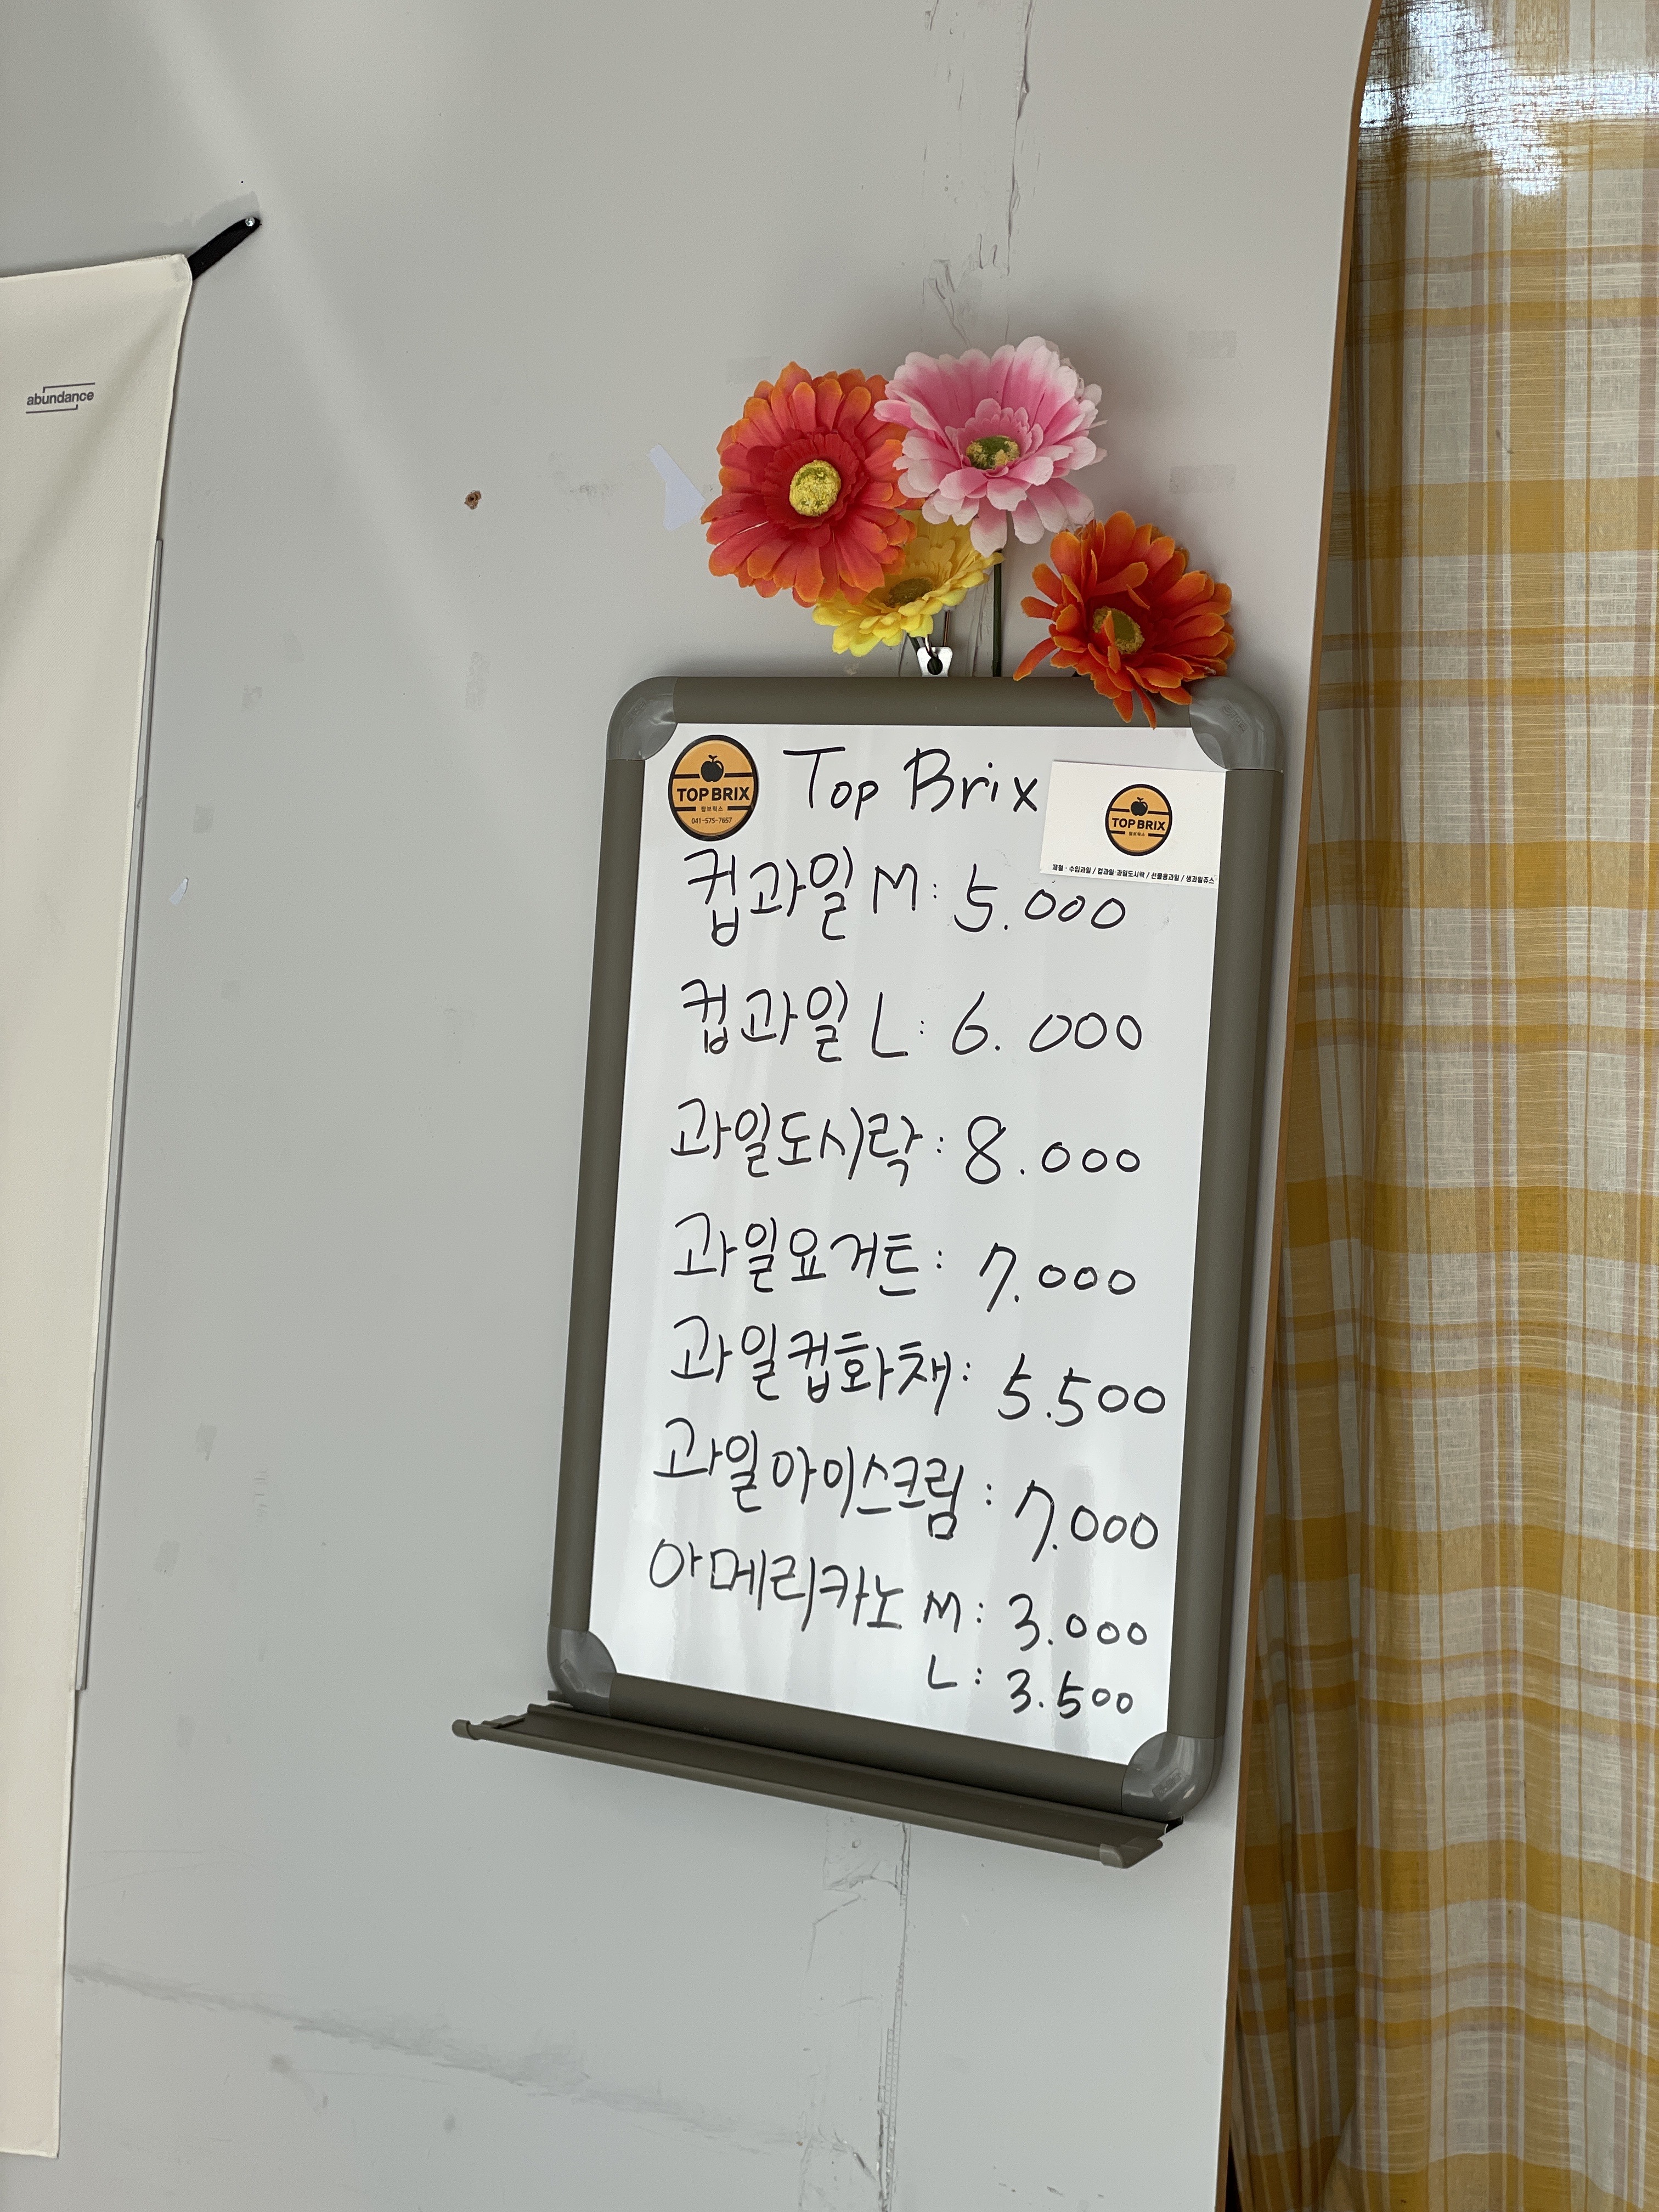 abundance
TOP BRIX
탑브릭스
041-575-7657
Top Brix
TOP BRIX
탑브릭스
제철·수입과일 / 컵과일·과일도시락 / 선물용과일 / 생과일쥬스
컵과일 M: 5.000
컵과일 L: 6.000
과일도시락: 8.000
과일요거트: 7.000
과일컵화채: 5.500
과일아이스크림: 7.000
아메리카노 M: 3.000
L: 3.500